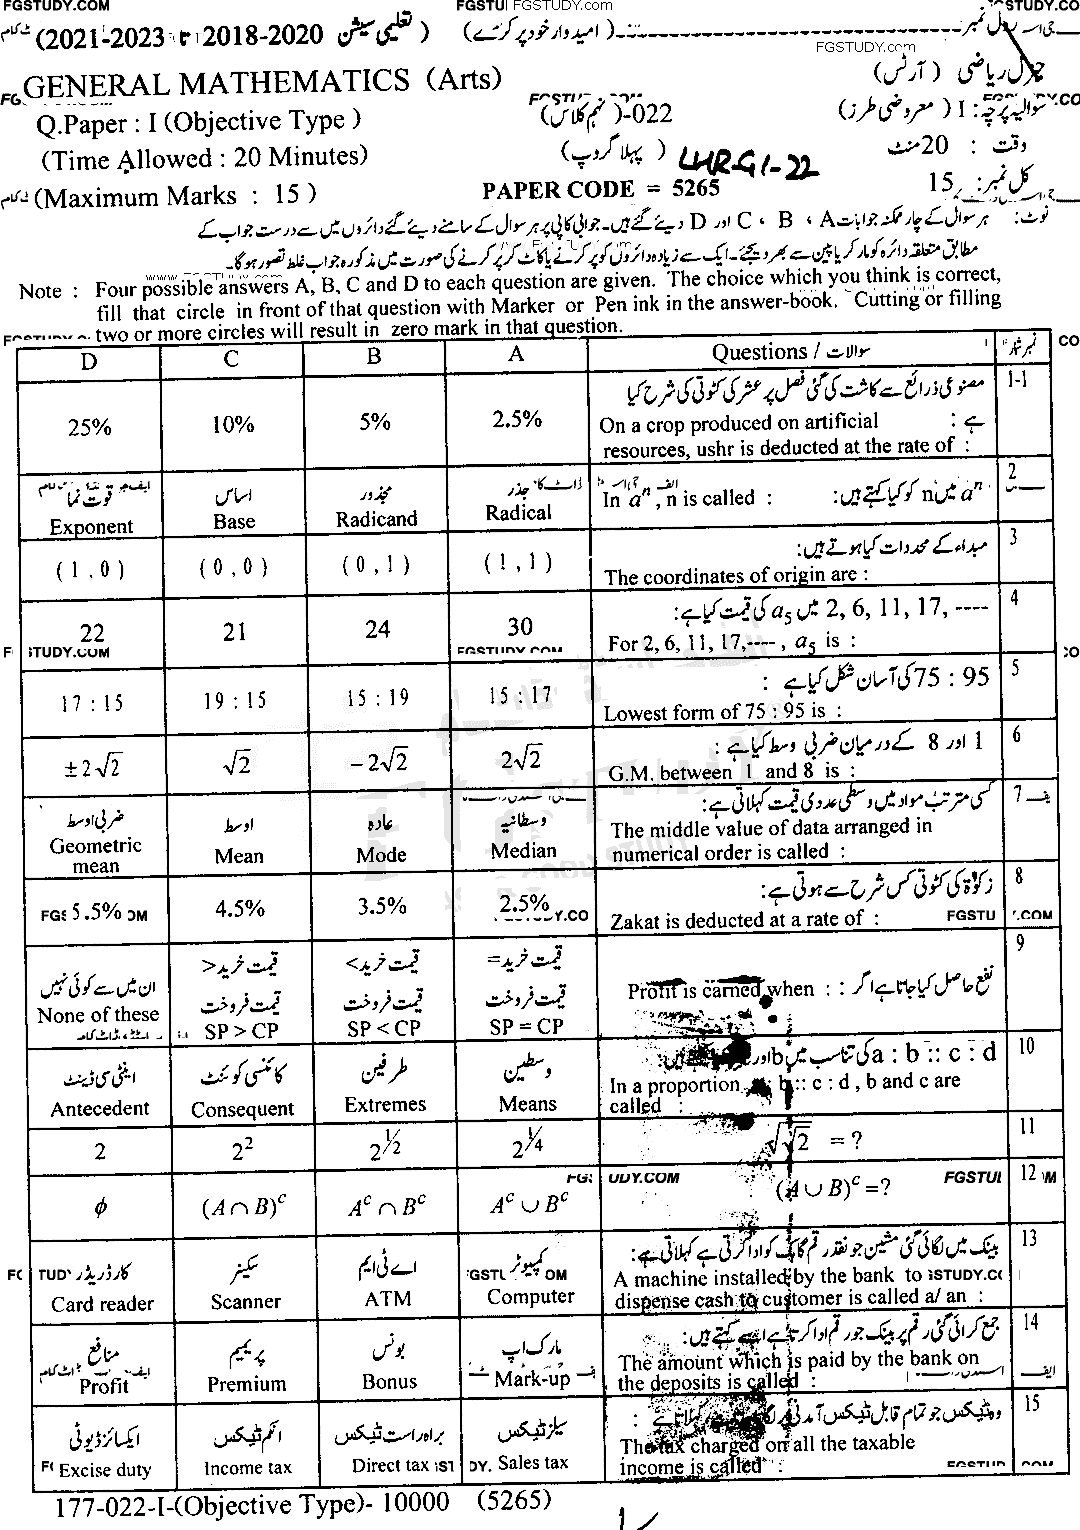 FGSTUDY.COM FGSTUDY.com FGSTUDY.COM
(تعلیمی سیشن 2018-2020 تا 2021-2023) (امیدوار خود پر کرے) رول نمبر
FGSTUDY.com
GENERAL MATHEMATICS (Arts) جنرل ریاضی (آرٹس)
Q.Paper : I (Objective Type ) 022-(نہم کلاس) سوالیہ پرچہ : I (معروضی طرز)
(Time Allowed : 20 Minutes) (پہلا گروپ) LHR-G1-22 وقت : 20 منٹ
(Maximum Marks : 15) PAPER CODE = 5265 کل نمبر : 15
نوٹ : ہر سوال کے چار ممکنہ جوابات A ، B ، C اور D دیئے گئے ہیں۔ جوابی کاپی پر ہر سوال کے سامنے دیئے گئے دائروں میں سے درست جواب کے
مطابق متعلقہ دائرہ کو مارکر یا پین سے بھر دیجئے۔ ایک سے زیادہ دائروں کو پر کرنے یا کاٹ کر پر کرنے کی صورت میں مذکورہ جواب غلط تصور ہوگا۔
Note : Four possible answers A, B, C and D to each question are given. The choice which you think is correct,
fill that circle in front of that question with Marker or Pen ink in the answer-book. Cutting or filling
two or more circles will result in zero mark in that question.
D C B A Questions / سوالات نمبر شمار
مصنوعی ذرائع سے کاشت کی گئی فصل پر عشر کی کٹوتی کی شرح کیا 1-1
25% 10% 5% 2.5% On a crop produced on artificial ہے :
resources, ushr is deducted at the rate of :
قوت نما اساس مجذور جذر aⁿ میں n کو کیا کہتے ہیں: 2
Exponent Base Radicand Radical In aⁿ , n is called :
مبداء کے محددات کیا ہوتے ہیں: 3
(1,0) (0,0) (0,1) (1,1) The coordinates of origin are :
2, 6, 11, 17, ---- میں a₅ کی قیمت کیا ہے: 4
22 21 24 30 For 2, 6, 11, 17,----, a₅ is :
FGSTUDY.COM
75 : 95 کی آسان شکل کیا ہے : 5
17 : 15 19 : 15 15 : 19 15 : 17 Lowest form of 75 : 95 is :
1 اور 8 کے درمیان ضربی وسط کیا ہے : 6
±2√2 √2 −2√2 2√2 G.M. between 1 and 8 is :
کسی مرتب مواد میں وسطی عددی قیمت کہلاتی ہے: 7
ضربی اوسط اوسط عادہ وسطانیہ The middle value of data arranged in
Geometric mean Mean Mode Median numerical order is called :
زکوٰۃ کی کٹوتی کس شرح سے ہوتی ہے: 8
5.5% 4.5% 3.5% 2.5% Zakat is deducted at a rate of :
ان میں سے کوئی نہیں قیمت خرید > قیمت فروخت قیمت خرید < قیمت فروخت قیمت خرید = قیمت فروخت نفع حاصل کیا جاتا ہے اگر : 9
None of these SP > CP SP < CP SP = CP Profit is earned when :
a : b :: c : d کی تناسب میں b اور 10
اینٹی سی ڈینٹ کانسی کوئنٹ طرفین وسطین In a proportion b :: c : d , b and c are
Antecedent Consequent Extremes Means called :
2 2² 2^½ 2^¼ √√2 = ? 11
FGSTUDY.COM
ϕ (A∩B)ᶜ Aᶜ∩Bᶜ Aᶜ∪Bᶜ (A∪B)ᶜ=? 12
بینک میں لگائی گئی مشین جو نقد رقم گاہک کو ادا کرتی ہے کہلاتی ہے: 13
کارڈ ریڈر سکینر اے ٹی ایم کمپیوٹر A machine installed by the bank to
Card reader Scanner ATM Computer dispense cash to customer is called a/ an :
جمع کرائی گئی رقم پر بینک جو رقم ادا کرتا ہے اسے کہتے ہیں: 14
منافع پریمیم بونس مارک اپ The amount which is paid by the bank on
Profit Premium Bonus Mark-up the deposits is called :
وہ ٹیکس جو تمام قابل ٹیکس آمدنی پر کہلاتا ہے : 15
ایکسائز ڈیوٹی انکم ٹیکس براہ راست ٹیکس سیلز ٹیکس The tax charged on all the taxable
Excise duty Income tax Direct tax Sales tax income is called :
177-022-I-(Objective Type)- 10000 (5265)